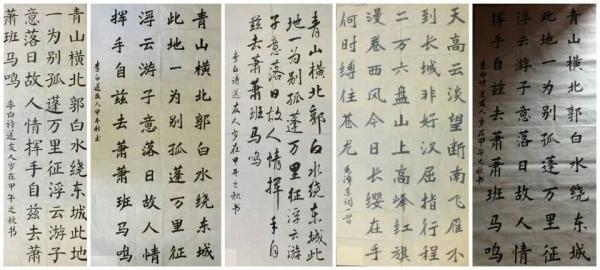 青山横北郭白水绕东城此地
一为别孤蓬万里征浮云游子
意落日故人情挥手自兹去萧
萧班马鸣
李白诗送友人岁在甲午之秋书
青山横北郭白水绕东城
此地一为别孤蓬万里征
浮云游子意落日故人情
挥手自兹去萧萧班马鸣
李白送友人甲午秋书
青山横北郭白水绕东城此
地一为别孤蓬万里征浮云游
子意落日故人情挥手自
兹去萧萧班马鸣
李白诗送友人岁在甲午之秋书
天高云淡望断南飞雁不
到长城非好汉屈指行程
二万六盘山上高峰红旗
漫卷西风今日长缨在手
何时缚住苍龙
毛泽东词一首
青山横北郭白水绕东城
此地一为别孤蓬万里征
浮云游子意落日故人情
挥手自兹去萧萧班马鸣
李白诗送友人岁在甲午之秋书